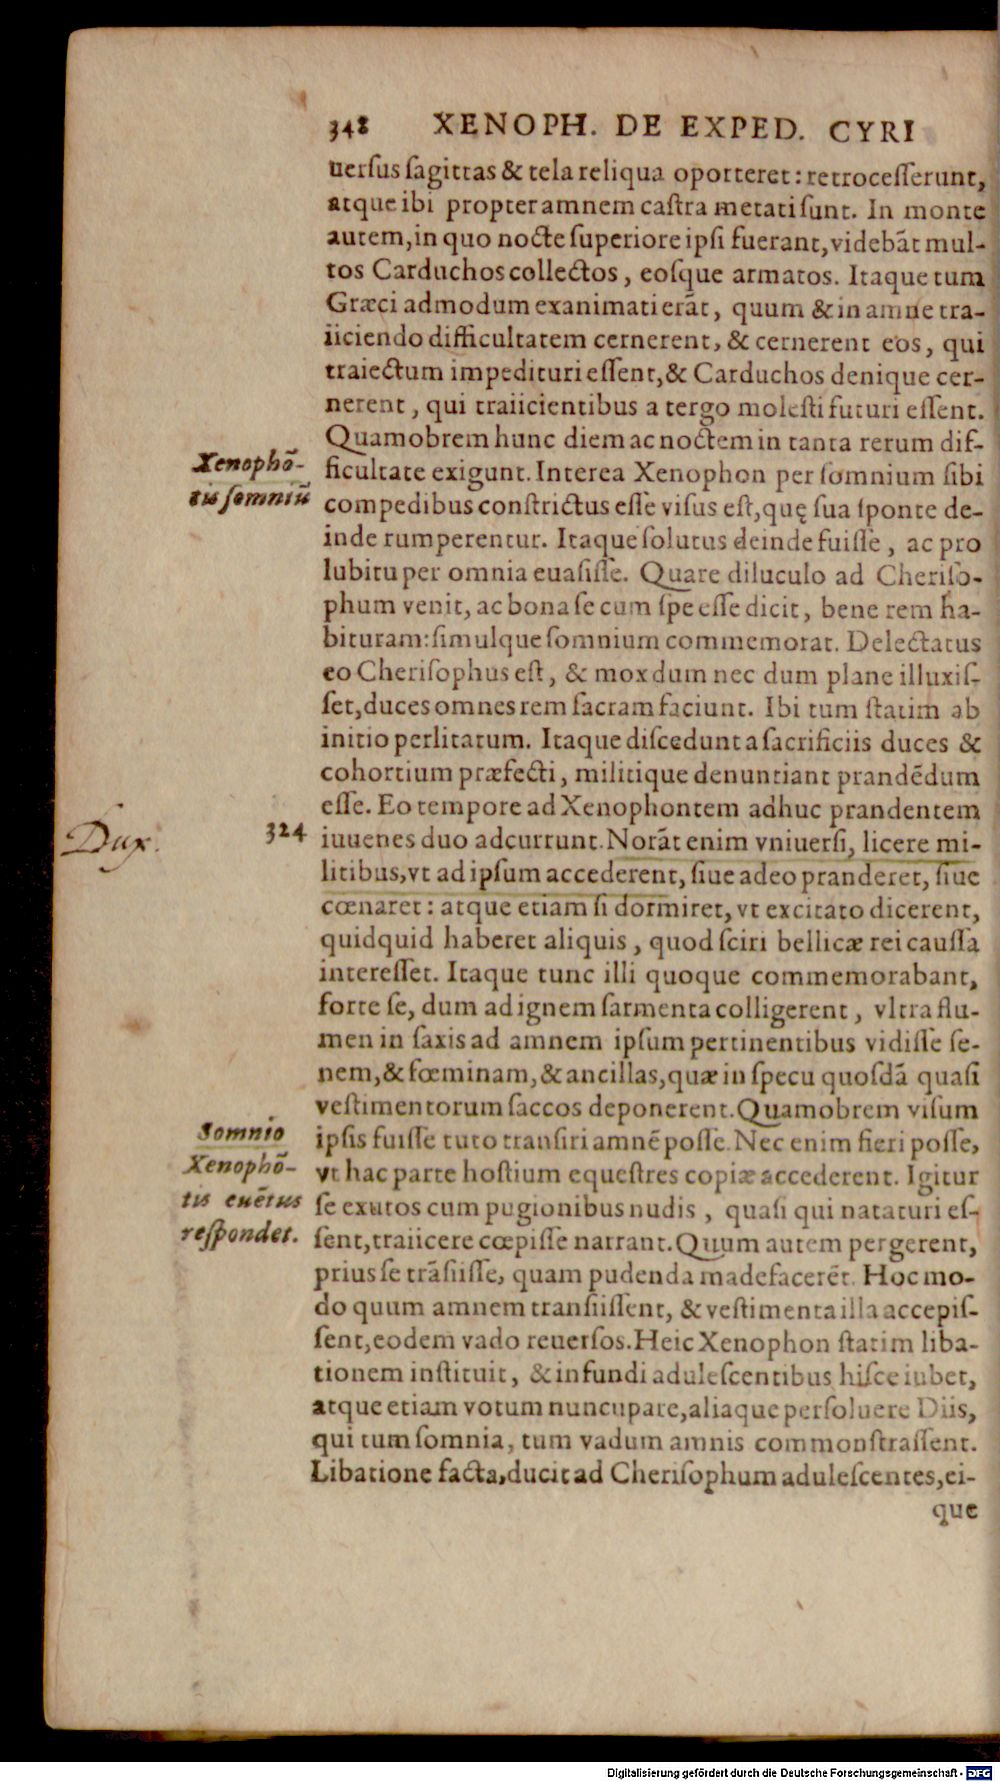 348 XENOPH. DE EXPED. CYRI
uersus sagittas & tela reliqua oporteret: retrocesserunt,
atque ibi propter amnem castra metati sunt. In monte
autem, in quo nocte superiore ipsi fuerant, videbāt mul-
tos Carduchos collectos, eosque armatos. Itaque tum
Græci admodum exanimati erāt, quum & in amne tra-
iiciendo difficultatem cernerent, & cernerent eos, qui
traiectum impedituri essent, & Carduchos denique cer-
nerent, qui traiicientibus a tergo molesti futuri essent.
Quamobrem hunc diem ac noctem in tanta rerum dif-
Xenophō-
ficultate exigunt. Interea Xenophon per somnium sibi
tis somniū
compedibus constrictus esse visus est, quę sua sponte de-
inde rumperentur. Itaque solutus deinde fuisse, ac pro
lubitu per omnia euasisse. Quare diluculo ad Cheriso-
phum venit, ac bona se cum spe esse dicit, bene rem ha-
bituram: simulque somnium commemorat. Delectatus
eo Cherisophus est, & mox dum nec dum plane illuxis-
set, duces omnes rem sacram faciunt. Ibi tum statim ab
initio perlitatum. Itaque discedunt a sacrificiis duces &
cohortium præfecti, militique denuntiant prandēdum
esse. Eo tempore ad Xenophontem adhuc prandentem
Dux.
324 iuuenes duo adcurrunt. Norāt enim vniuersi, licere mi-
litibus, vt ad ipsum accederent, siue adeo pranderet, siue
cœnaret: atque etiam si dormiret, vt excitato dicerent,
quidquid haberet aliquis, quod sciri bellicæ rei caussa
interesset. Itaque tunc illi quoque commemorabant,
forte se, dum ad ignem sarmenta colligerent, vltra flu-
men in saxis ad amnem ipsum pertinentibus vidisse se-
nem, & fœminam, & ancillas, quæ in specu quosdā quasi
vestimentorum saccos deponerent. Quamobrem visum
Somnio
ipsis fuisse tuto transiri amnē posse. Nec enim fieri posse,
Xenophō-
vt hac parte hostium equestres copiæ accederent. Igitur
tis euētus
se exutos cum pugionibus nudis, quasi qui nataturi es-
respondet.
sent, traiicere cœpisse narrant. Quum autem pergerent,
prius se trāsiisse, quam pudenda madefacerēt. Hoc mo-
do quum amnem transiissent, & vestimenta illa accepis-
sent, eodem vado reuersos. Heic Xenophon statim liba-
tionem instituit, & infundi adulescentibus hisce iubet,
atque etiam votum nuncupare, aliaque persoluere Diis,
qui tum somnia, tum vadum amnis commonstrassent.
Libatione facta, ducit ad Cherisophum adulescentes, ei-
que
Digitalisierung gefördert durch die Deutsche Forschungsgemeinschaft - DFG